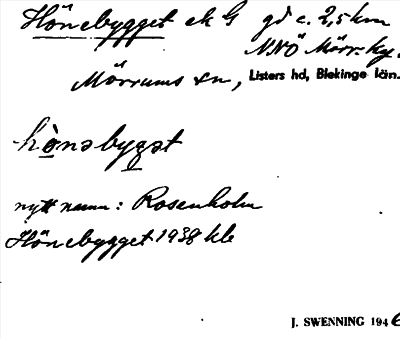 Hönebygget ek G gd c. 2,5 km
NNÖ Mörr. ky.
Mörrums sn, Listers hd, Blekinge län.
hònəbyqət
nytt namn: Rosenholm
Hönebygget 1938 kle
J. SWENNING 1946